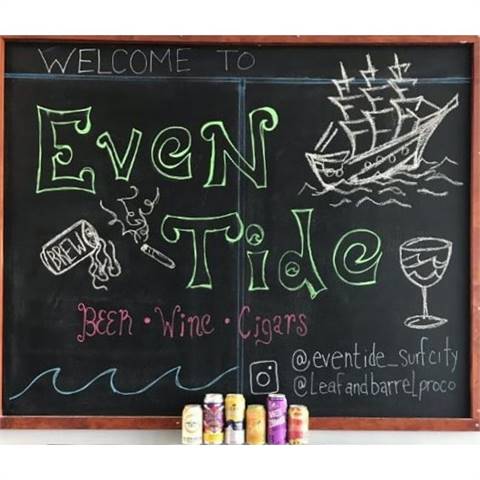 WELCOME TO
EveN
Tide
BREW
BEER · WiNe · Cigars
@eventide_surfcity
@Leafandbarrelproco